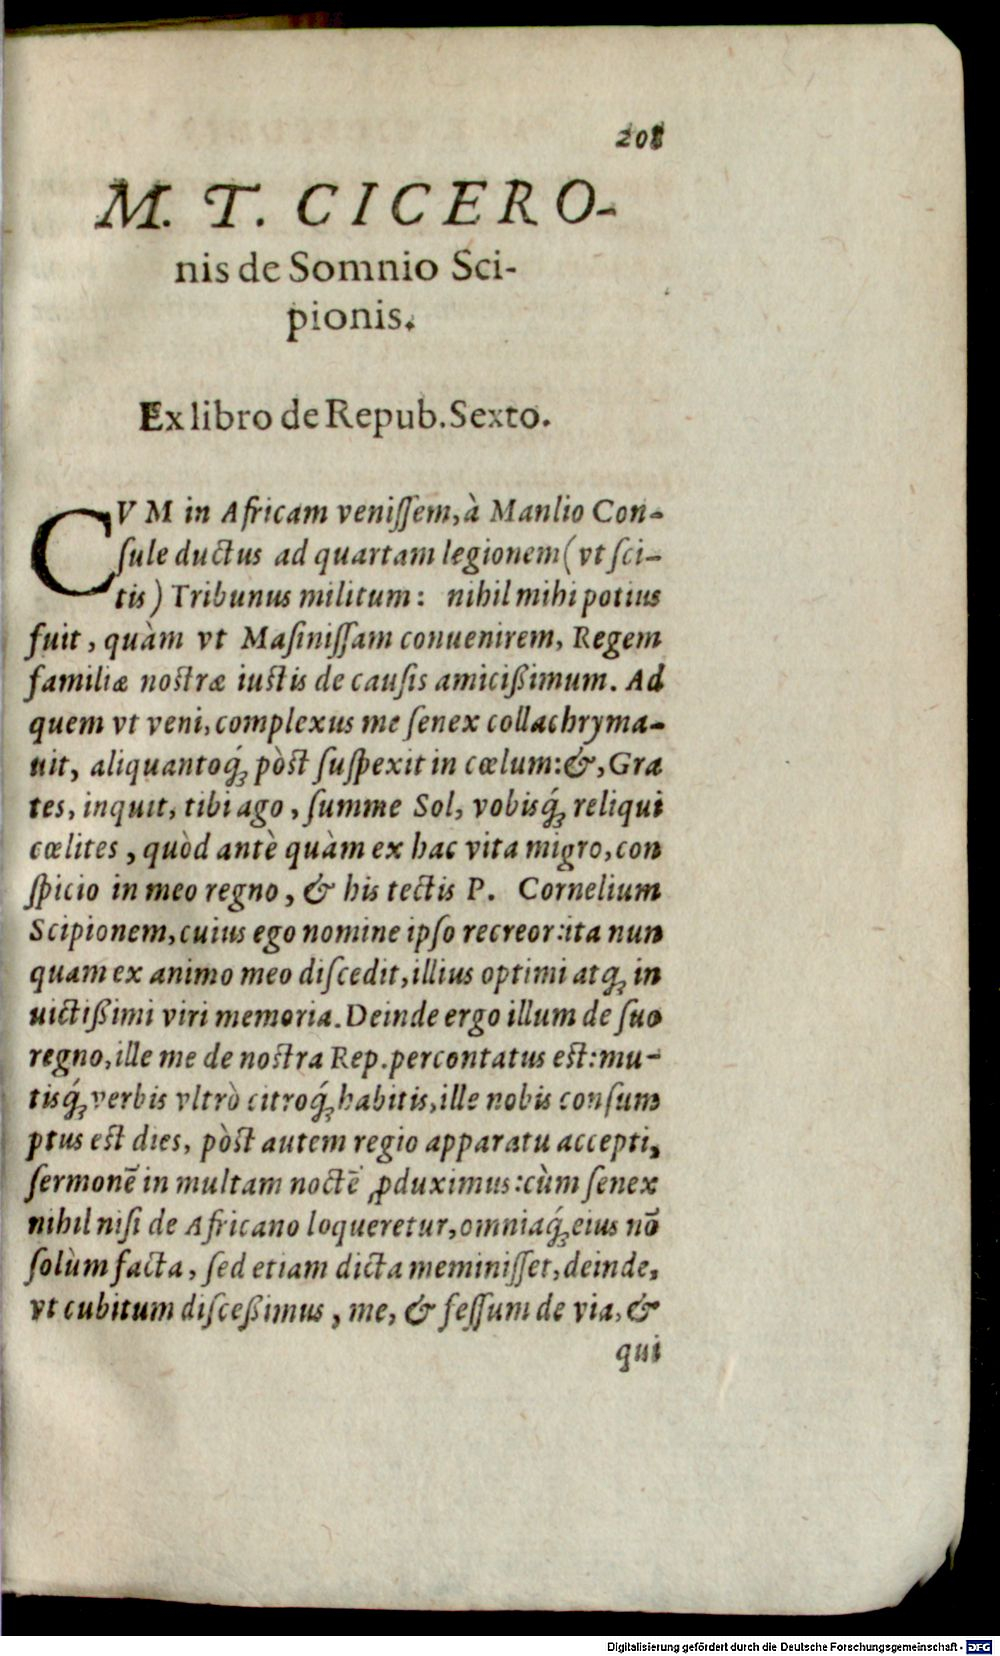 208
M. T. CICERO-
nis de Somnio Sci-
pionis.
Ex libro de Repub. Sexto.
CVM in Africam veniſſem, à Manlio Con-
ſule ductus ad quartam legionem (vt ſci-
tis) Tribunus militum: nihil mihi potius
fuit, quàm vt Maſiniſſam conuenirem, Regem
familiæ noſtræ iuſtis de cauſis amicißimum. Ad
quem vt veni, complexus me ſenex collachryma-
uit, aliquantoq́; pòſt ſuſpexit in cœlum: &, Gra
tes, inquit, tibi ago, ſumme Sol, vobisq́; reliqui
cœlites, quòd antè quàm ex hac vita migro, con
ſpicio in meo regno, & his tectis P. Cornelium
Scipionem, cuius ego nomine ipſo recreor: ita nun
quam ex animo meo diſcedit, illius optimi atq; in
uictißimi viri memoria. Deinde ergo illum de ſuo
regno, ille me de noſtra Rep. percontatus eſt: mu-
tisq́; verbis vltrò citroq́; habitis, ille nobis conſum
ptus eſt dies, pòſt autem regio apparatu accepti,
ſermonē in multam noctē ꝓduximus: cùm ſenex
nihil niſi de Africano loqueretur, omniaq́; eius nō
ſolùm facta, ſed etiam dicta meminiſſet, deinde,
vt cubitum diſceßimus, me, & feſſum de via, &
qui
Digitalisierung gefördert durch die Deutsche Forschungsgemeinschaft - DFG